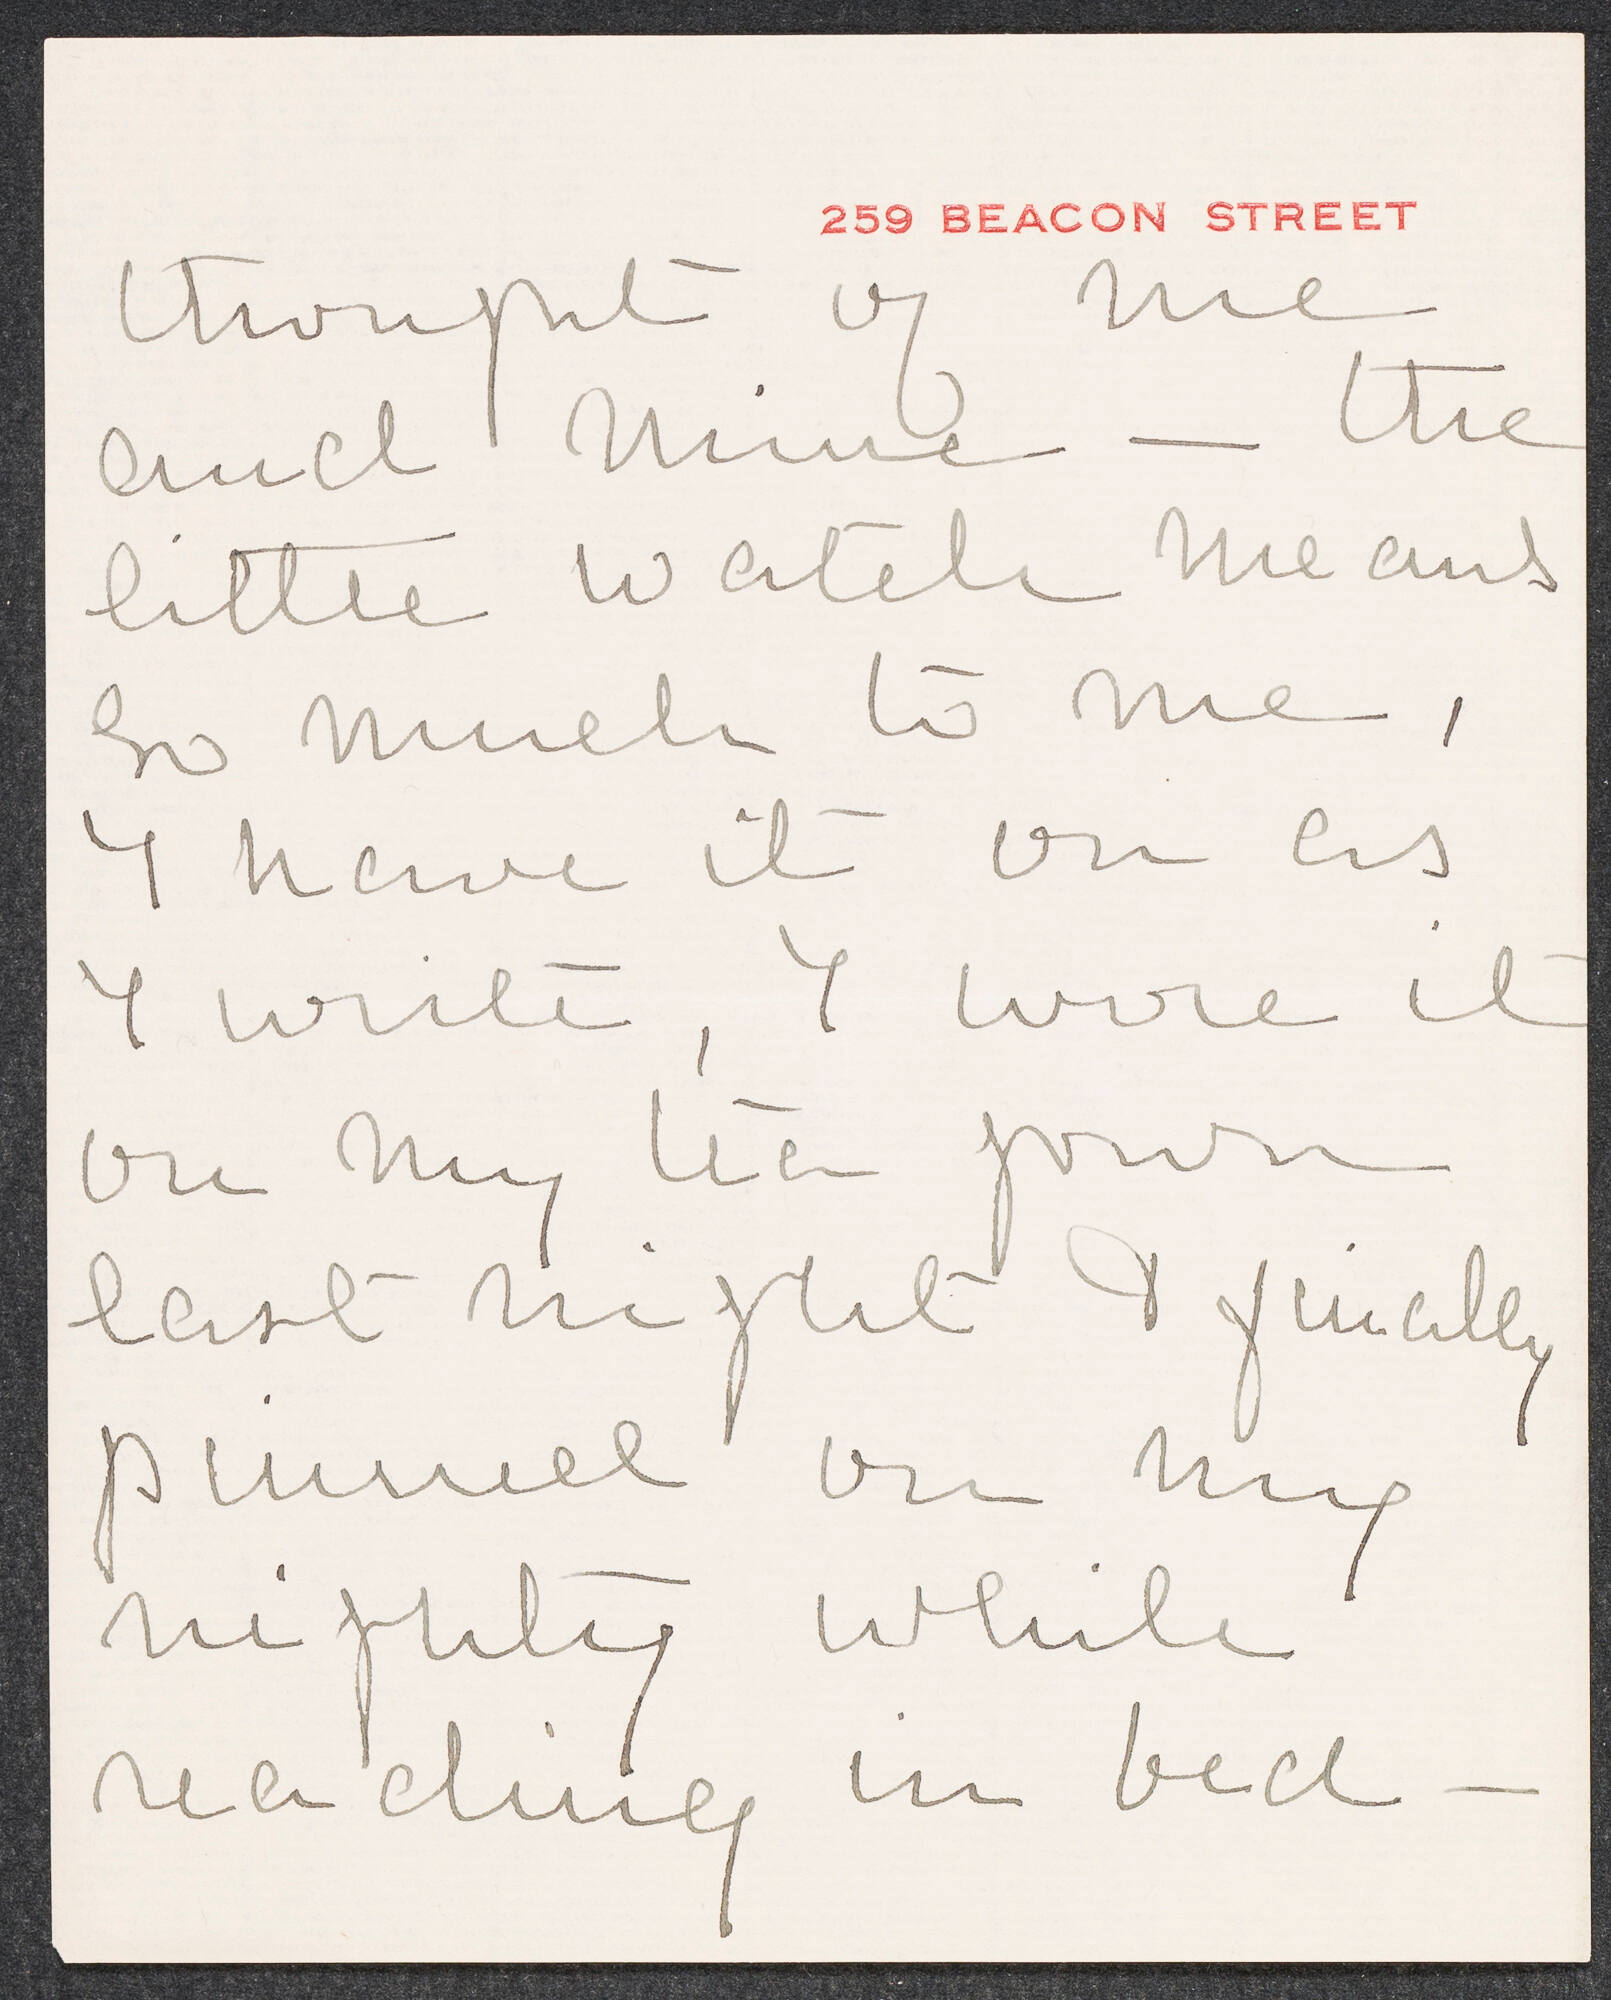 259 BEACON STREET
thought of me
and mine — the
little watch means
so much to me,
I have it on as
I write, I wore it
on my tea gown
last night & finally
pinned on my
nighty while
reading in bed —